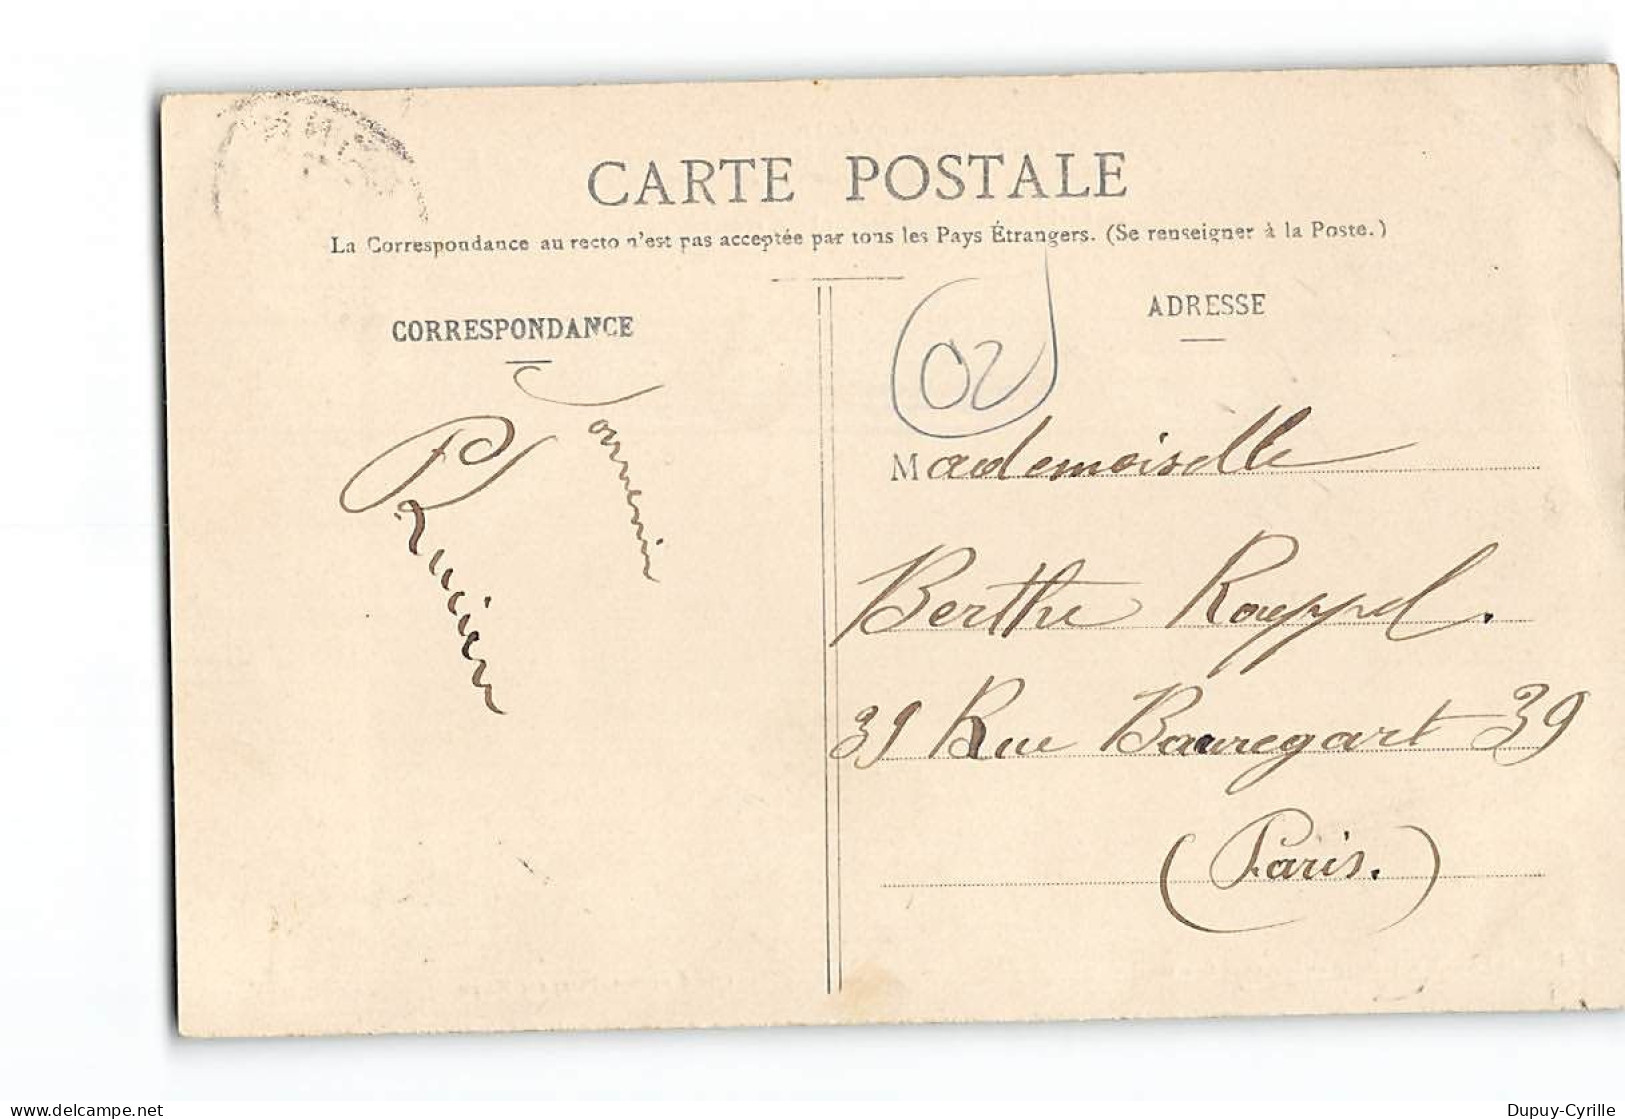 CARTE POSTALE
La Correspondance au recto n'est pas acceptée par tous les Pays Étrangers. (Se renseigner à la Poste.)
CORRESPONDANCE
Souvenir
Lucien
ADRESSE
02
Mademoiselle
Berthe Rouppel.
39 Rue Bauregart 39
(Paris.)
delcampe.net
Dupuy-Cyrille